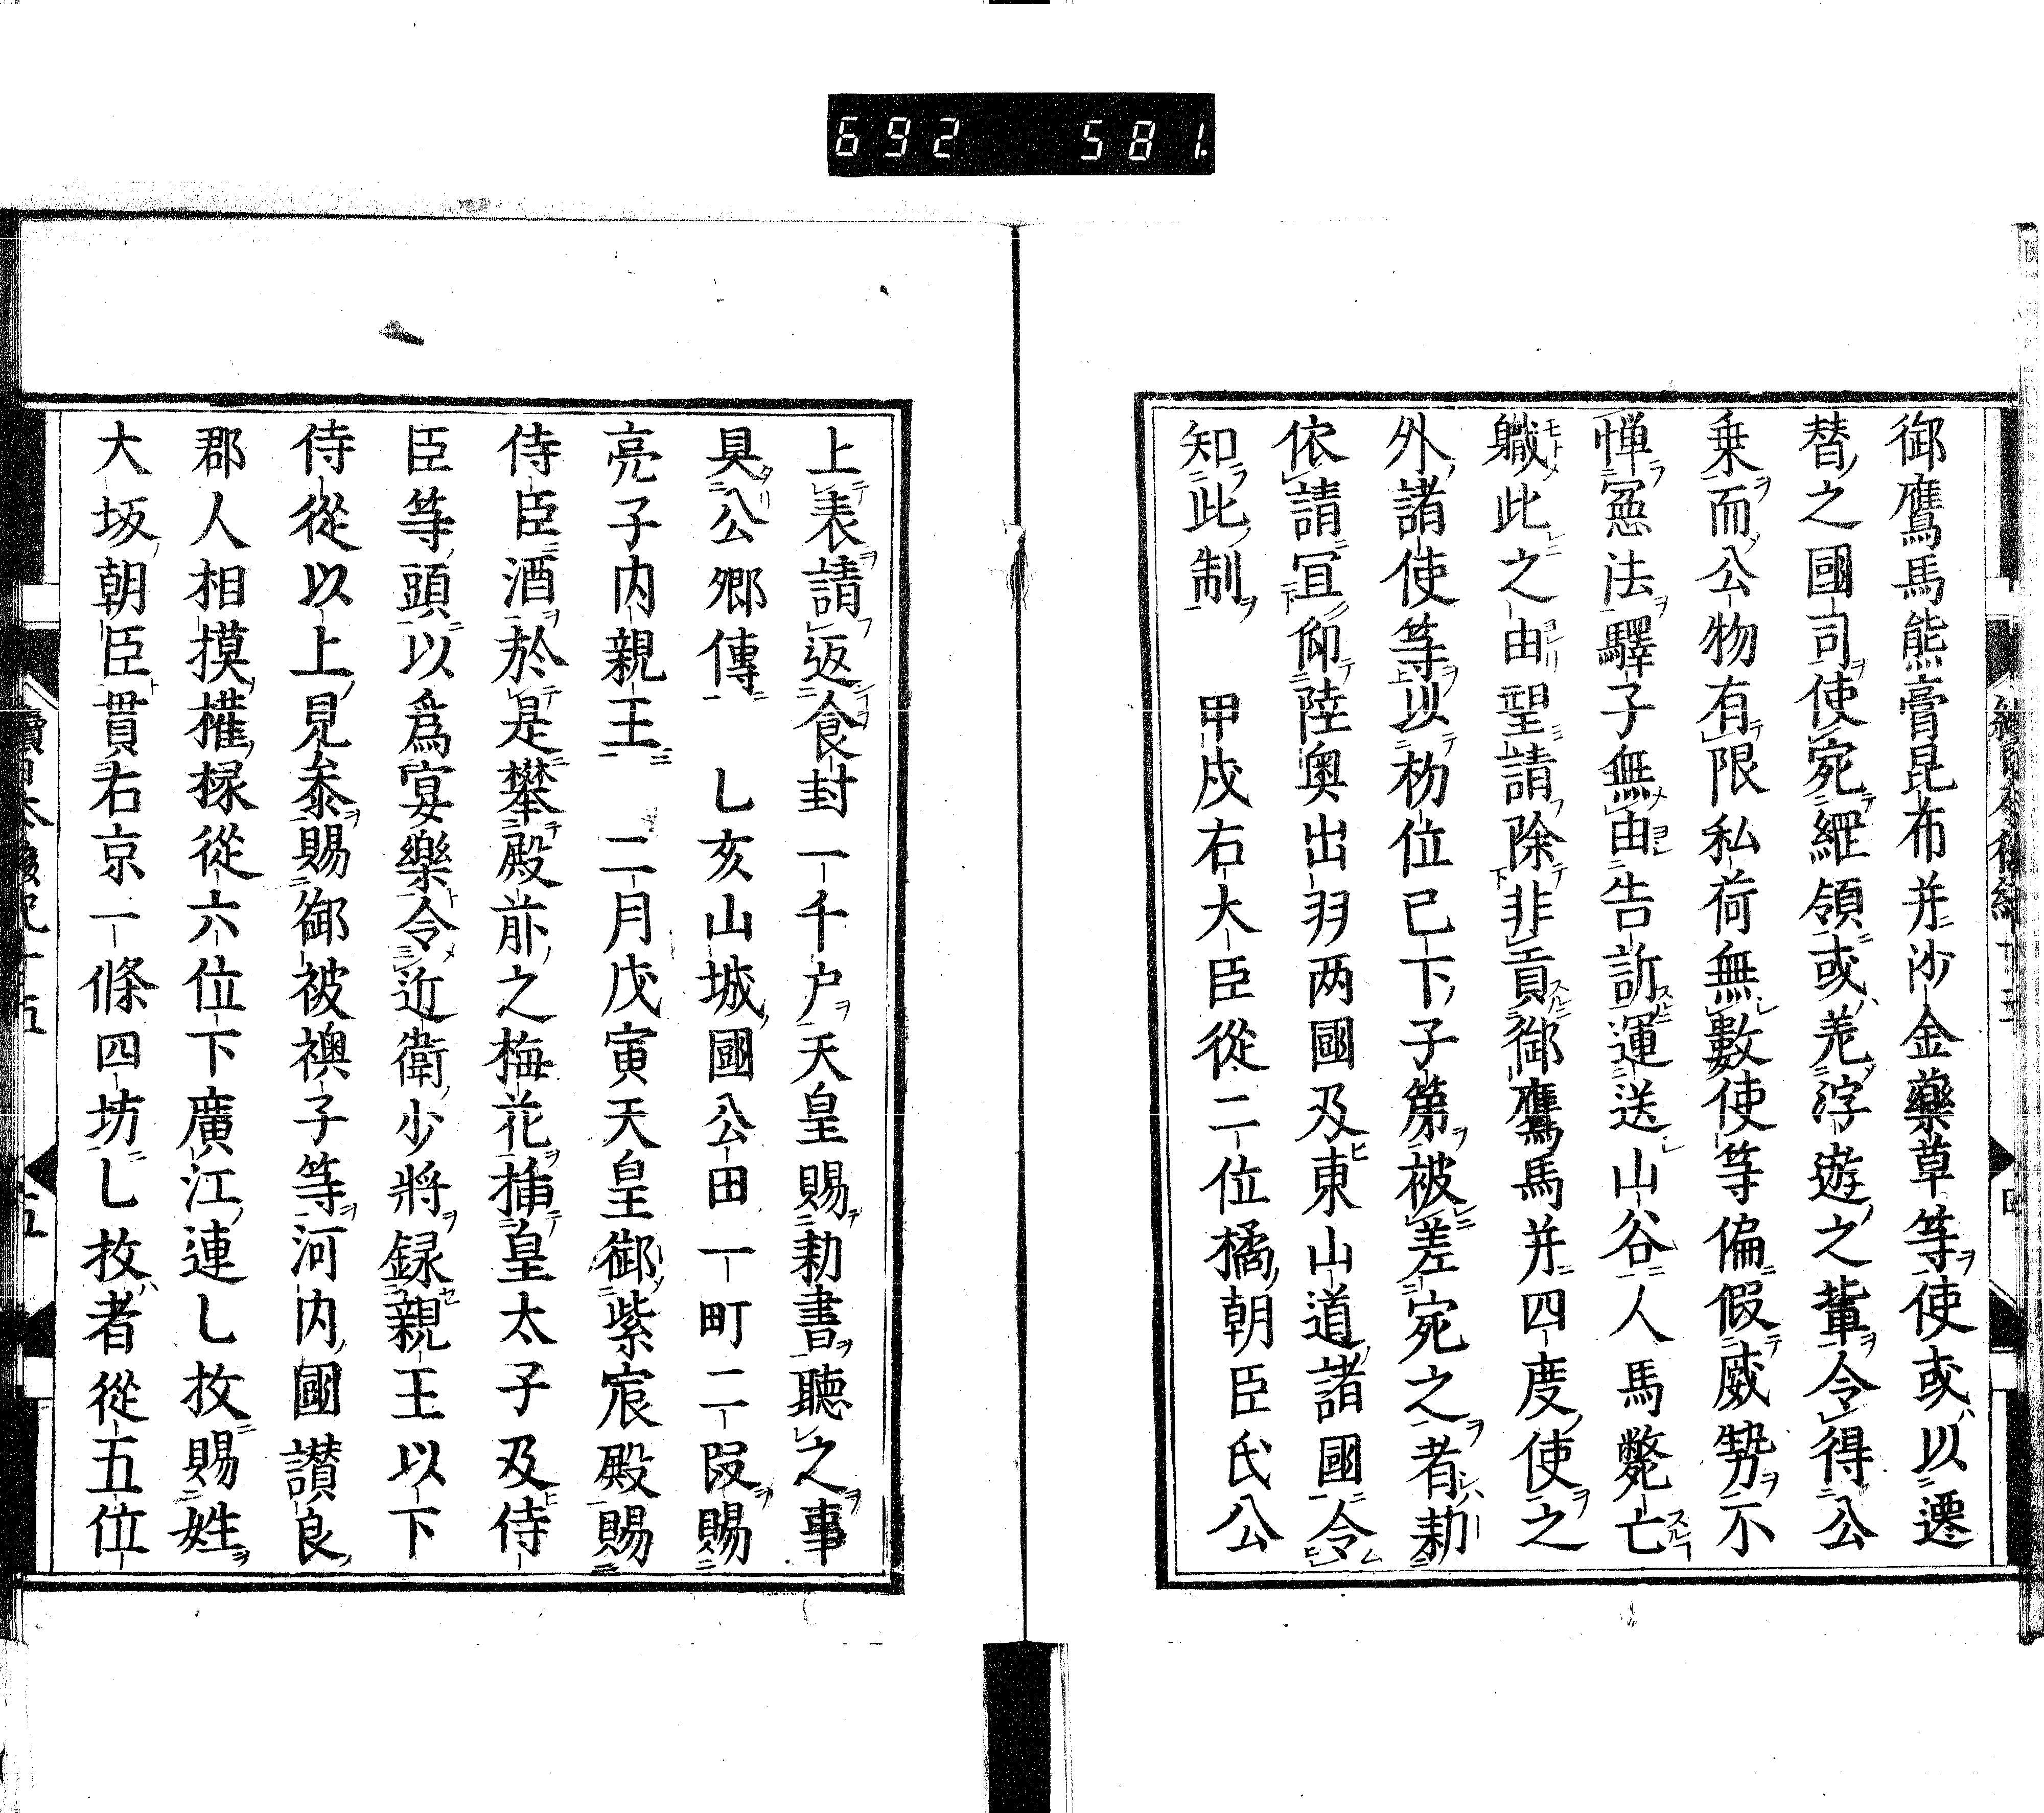 692 581.
御鷹馬熊膏昆布并沙金藥草等使或以遷
替之國司使宛綱領或差浮遊之輩令得公
乗而公物有限私荷無數使等偏假威勢不
憚憲法驛子無由告訴運送山谷人馬斃亡
職此之由望請除非貢御鷹馬并四度使之
外諸使等以初位已下子第被差宛之者勅
依請冝仰陸奥出羽两國及東山道諸國令
知此制　甲戌右大臣從二位橘朝臣氏公
上表請返食封一千户天皇賜勅書聽之事
具公卿傳　乚亥山城國公田一町二段賜
亮子内親王　二月戊寅天皇御紫宸殿賜
侍臣酒於是攀殿前之梅花揷皇太子及侍
臣等頭以爲宴樂令近衛少將録親王以下
侍從以上見叅賜御被襖子等河内國讃良
郡人相摸權掾從六位下廣江連乚枚賜姓
大坂朝臣貫右京一條四坊乚枚者從五位